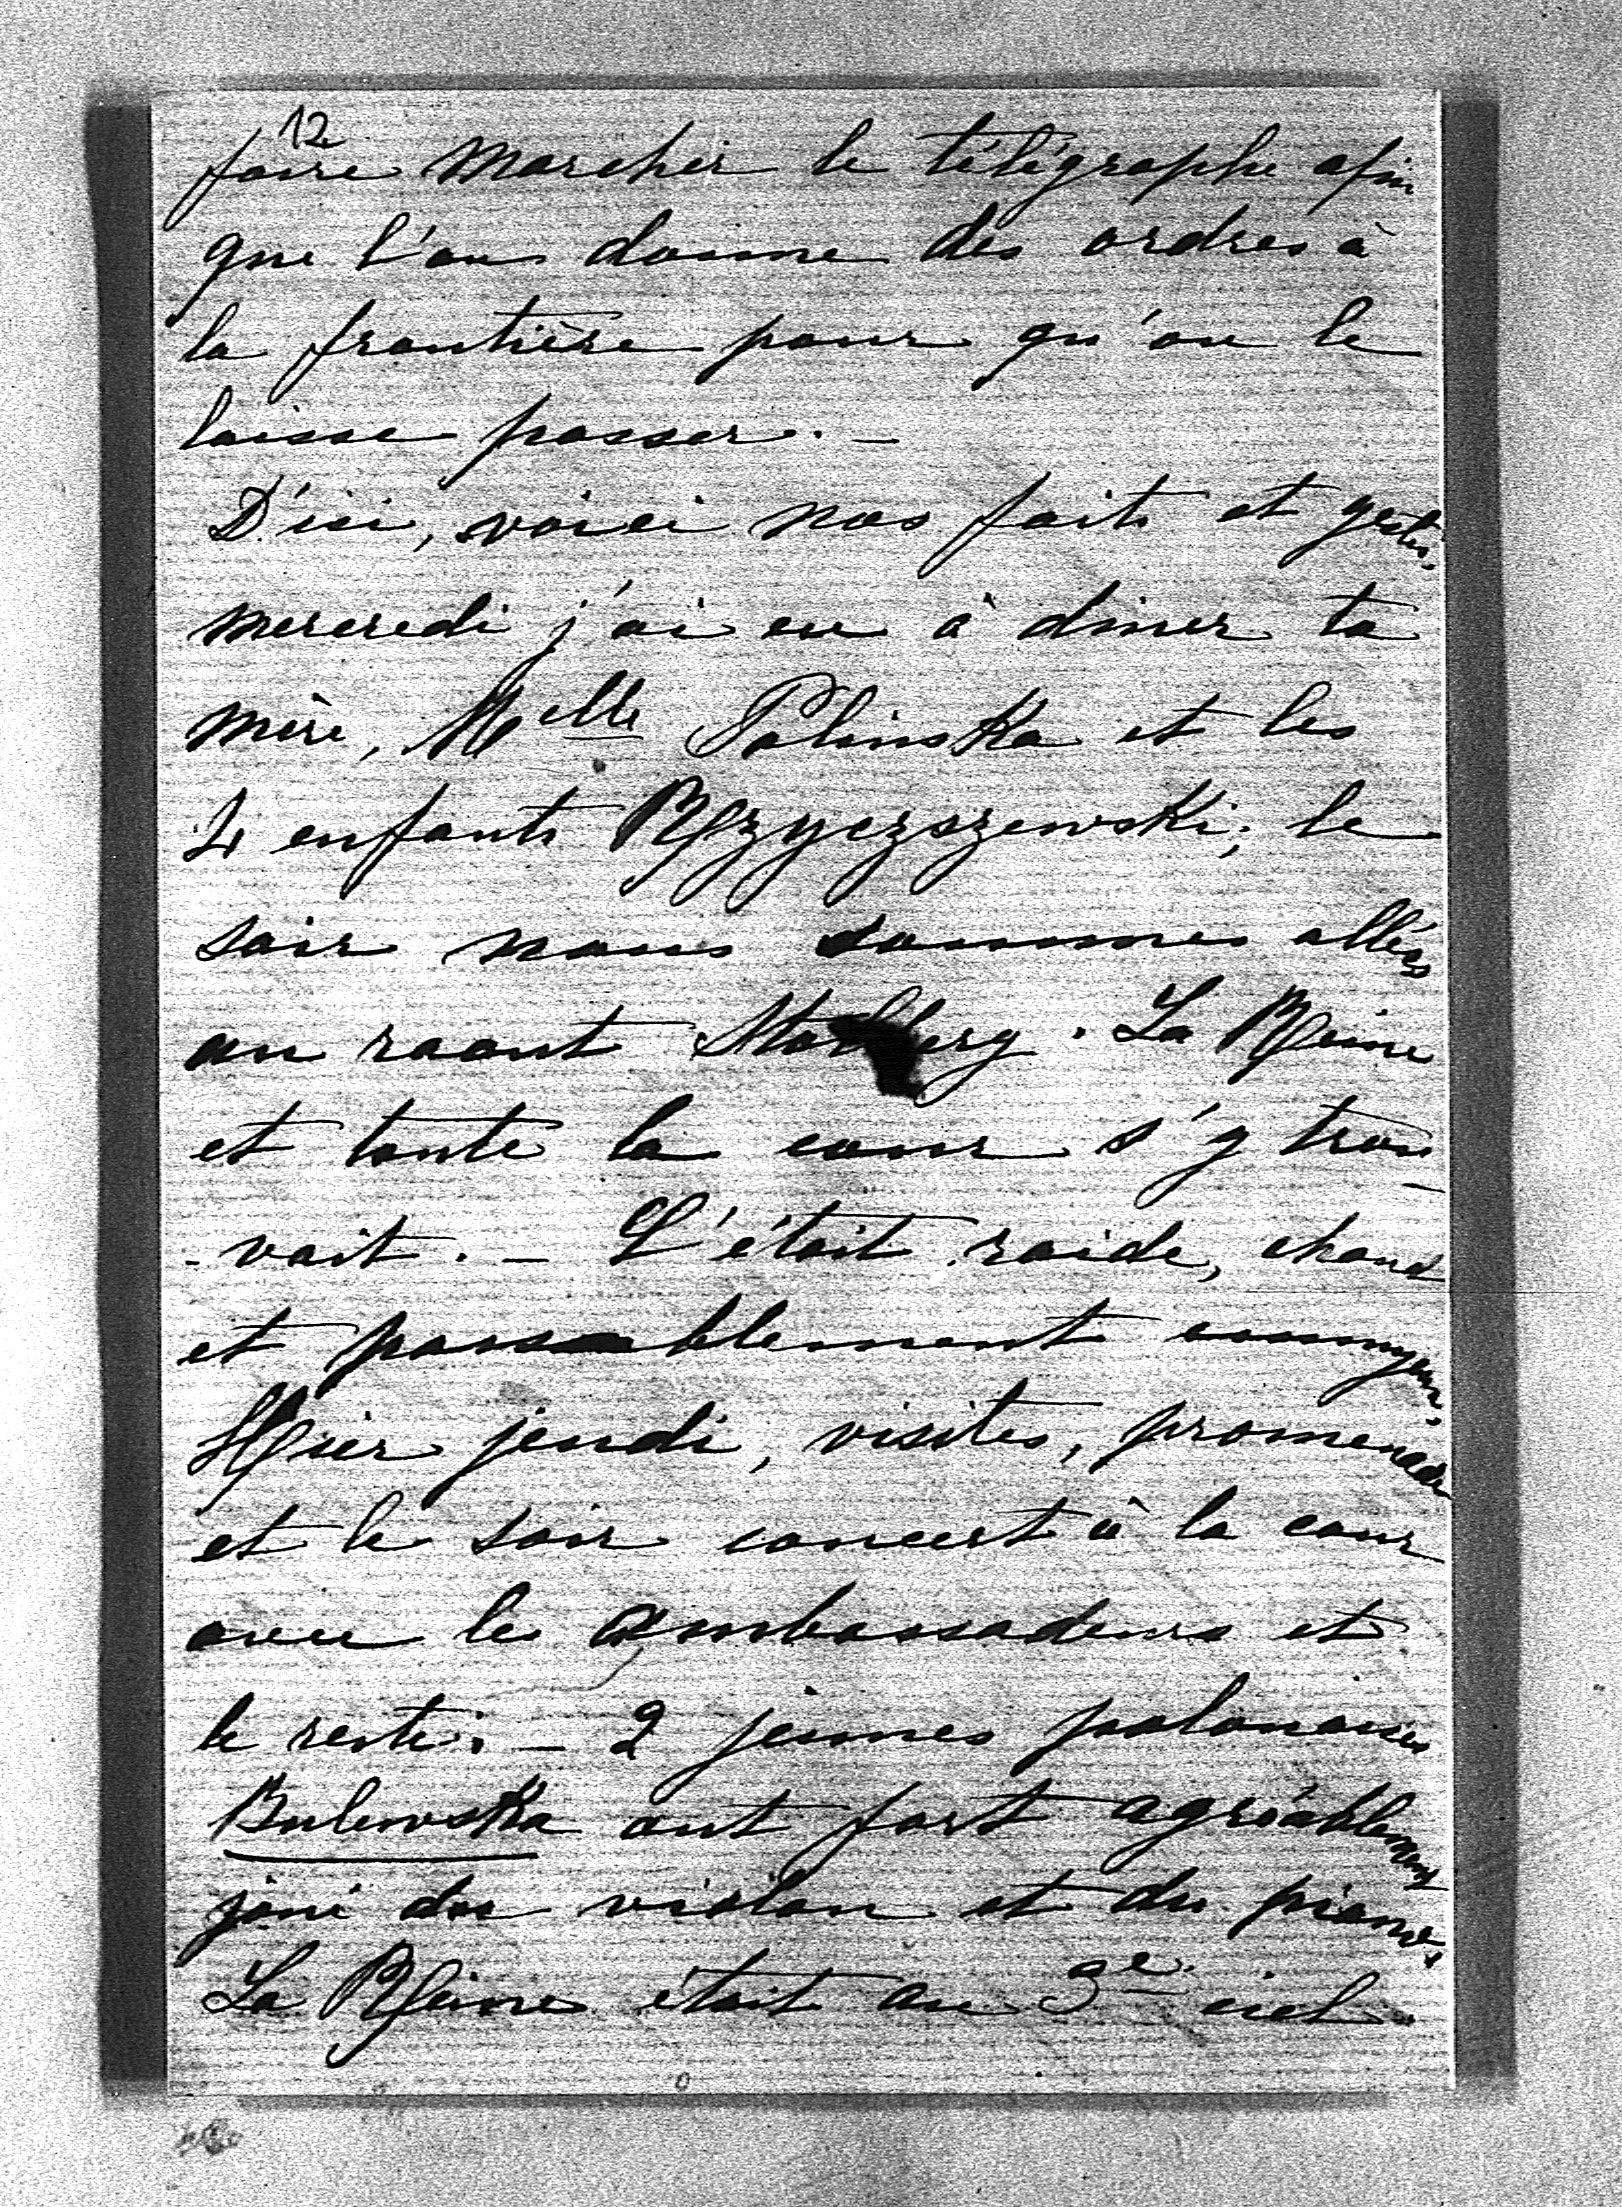 12
faire marcher le télégraphe afin
que l'on donne des ordres à
la frontière pour qu'on le
laisse passer. —
D'ici, voici nos faits et gestes.
mercredi j'ai eu à diner ta
mère, Melle Palinska et les
4 enfants Rzyczszewski; le
soir nous sommes allés
au raout Stolberg. La Reine
et toute la cour s'y trou-
-vait. — C'était raide, chaud
et passablement ennuyeux.
Hier jeudi, visites, promenade
et le soir concert à la cour
avec les ambassadeurs et
le reste. — 2 jeunes polonaises
Bulewska ont fort agréablement
joué du violon et du piano.
La Reine était au 3e ciel